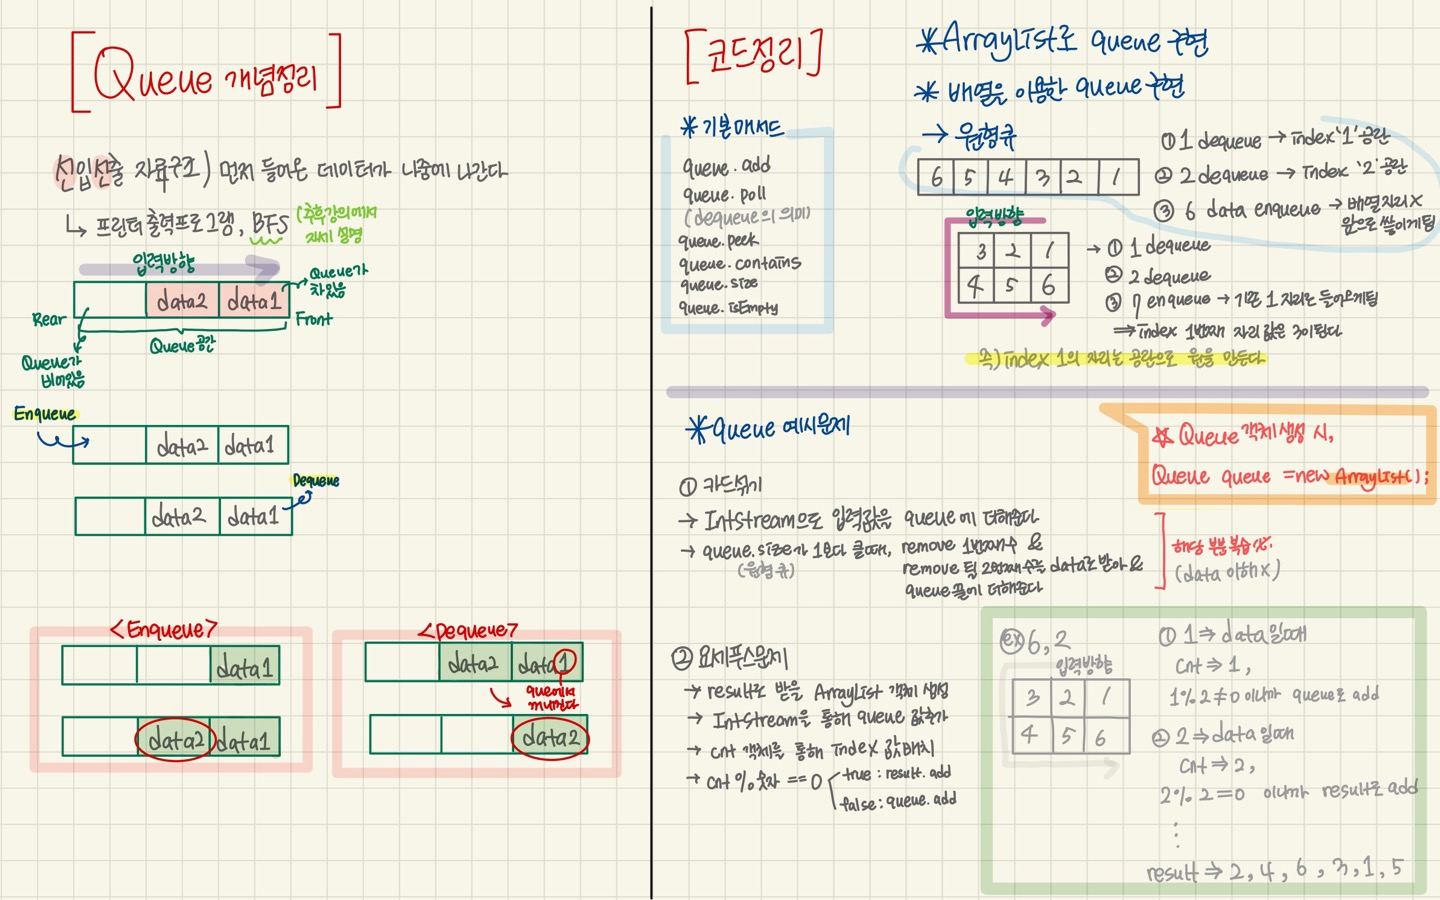 [Queue 개념정리]
선입선출 자료구조) 먼저 들어온 데이터가 나중에 나간다
↳ 프린터 출력프로그램, BFS (추후강의에서 자세 설명
입력방향
data2 data1
Queue가
차있음
Rear
Front
Queue공간
Queue가
비어있음
Enqueue
data2 data1
Dequeue
data2 data1
<Enqueue>
data1
data2 data1
<Dequeue>
data2 data1
queue에서
data2
[코드정리]
*기본매서드
queue.add
queue.poll
(dequeue의 의미)
queue.peek
queue.contains
queue.size
queue.isEmpty
*ArrayList로 queue 구현
* 배열을 이용한 queue 구현
→ 원형큐
6 5 4 3 2 1
① 1 dequeue → index '1' 공란
② 2 dequeue → index '2' 공란
③ 6 data enqueue → 배열자리 X
입력방향
3 2 1
4 5 6
→ ① 1 dequeue
② 2 dequeue
③ 7 enqueue → 기존 1 자리로 들어오게됨
⇒ index 1번째 자리 값은 3이된다
즉) index 1의 자리는 공란으로 원을 만든다
*queue 예시문제
☆ Queue 객체 생성 시,
Queue queue = new ArrayList();
① 카드섞기
→ Intstream으로 입력값을 queue에 더해준다
→ queue.size가 1보다 클때, remove 1번째수 &
(원형 큐)
remove 될 2번째 수를 data로 받아 &
queue 끝에 더해준다
해당 부분 복습 必.
(data 이해 X)
② 요세푸스문제
→ result로 받을 ArrayList 객체 생성
→ Intstream을 통해 queue 값추가
→ cnt 객체를 통해 index 값 배치
→ cnt % 숫자 == 0
true : result.add
false : queue.add
ex) 6, 2
입력방향
3 2 1
4 5 6
① 1 ⇒ data일때
cnt ⇒ 1,
1%2 ≠ 0 이니까 queue로 add
② 2 ⇒ data일때
cnt ⇒ 2,
2% 2 = 0 이니까 result로 add
⋮
result ⇒ 2, 4, 6, 3, 1, 5